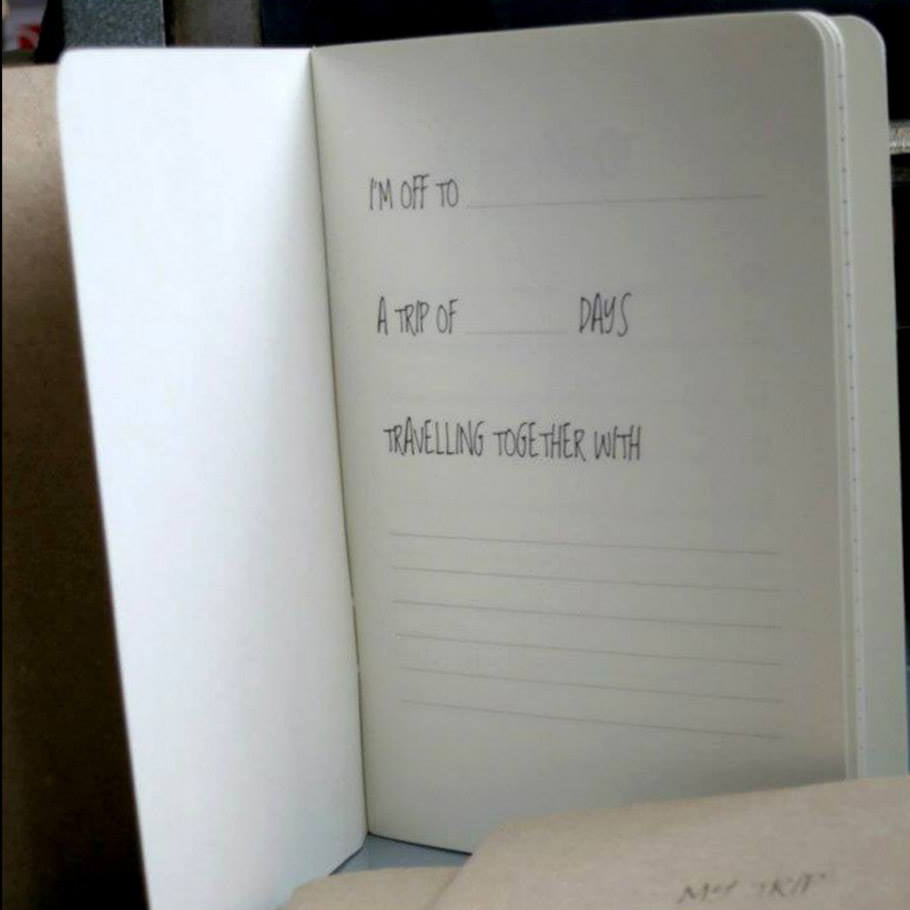 I'M OFF TO
A TRIP OF DAYS
TRAVELLING TOGETHER WITH
MY TRIP